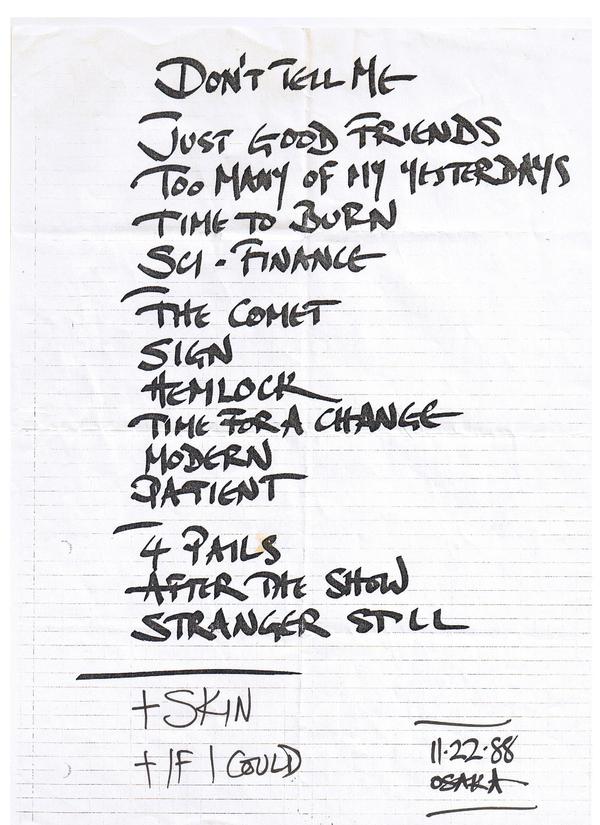 DON'T TELL ME
JUST GOOD FRIENDS
TOO MANY OF MY YESTERDAYS
TIME TO BURN
SCI-FINANCE
THE COMET
SIGN
HEMLOCK
TIME FOR A CHANGE
MODERN
PATIENT
4 PAILS
AFTER THE SHOW
STRANGER STILL
+ SKIN
+ IF I COULD
11·22·88
OSAKA